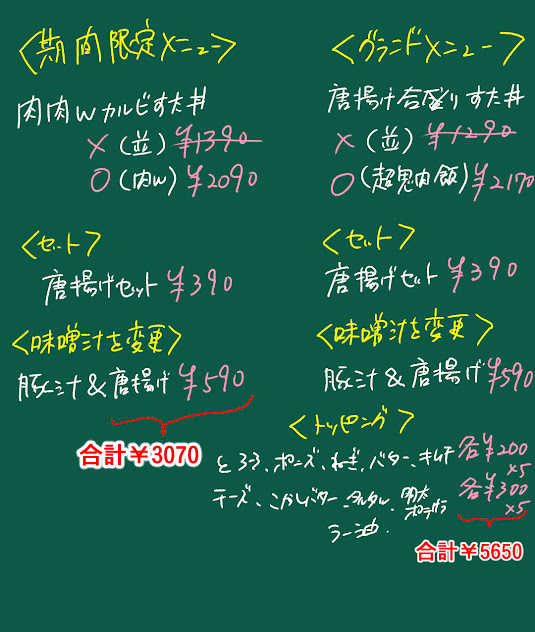 <期間限定メニュー>
肉肉Wカルビすた丼
×(並) ¥1390
○(肉W) ¥2090
<セット>
唐揚げセット ¥390
<味噌汁を変更>
豚汁&唐揚げ ¥590
合計¥3070
<グランドメニュー>
唐揚げ合盛りすた丼
×(並) ¥1290
○(超鬼肉飯) ¥2170
<セット>
唐揚げセット ¥390
<味噌汁を変更>
豚汁&唐揚げ ¥590
<トッピング>
とろろ、ポンズ、ねぎ、バター、キムチ 各¥200×5
チーズ、こがしバター、タルタル、明太ポテサラ 各¥300×5
ラー油
合計¥5650